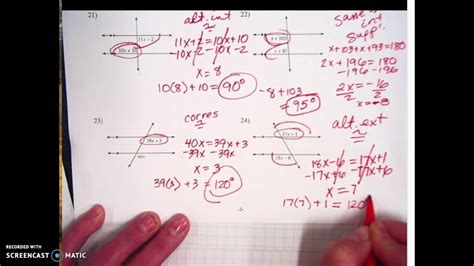 21)
11x - 2
10x + 10
alt. int
≅
11x - 2 = 10x + 10
-10x + 2 -10x + 2
x = 8
10(8) + 10 = 90°
22)
x + 103
x + 93
same
int
suppl.
x + 103 + x + 93 = 180
2x + 196 = 180
-196 -196
2x = -16
2 2
x = -8
-8 + 103
= 95°
23)
39x + 3
40x
corres
≅
40x = 39x + 3
-39x -39x
x = 3
39(3) + 3 = 120°
24)
17x + 1
18x - 6
alt. ext
≅
18x - 6 = 17x + 1
-17x + 6 -17x + 6
x = 7
17(7) + 1 = 120
-1-
RECORDED WITH
SCREENCAST MATIC